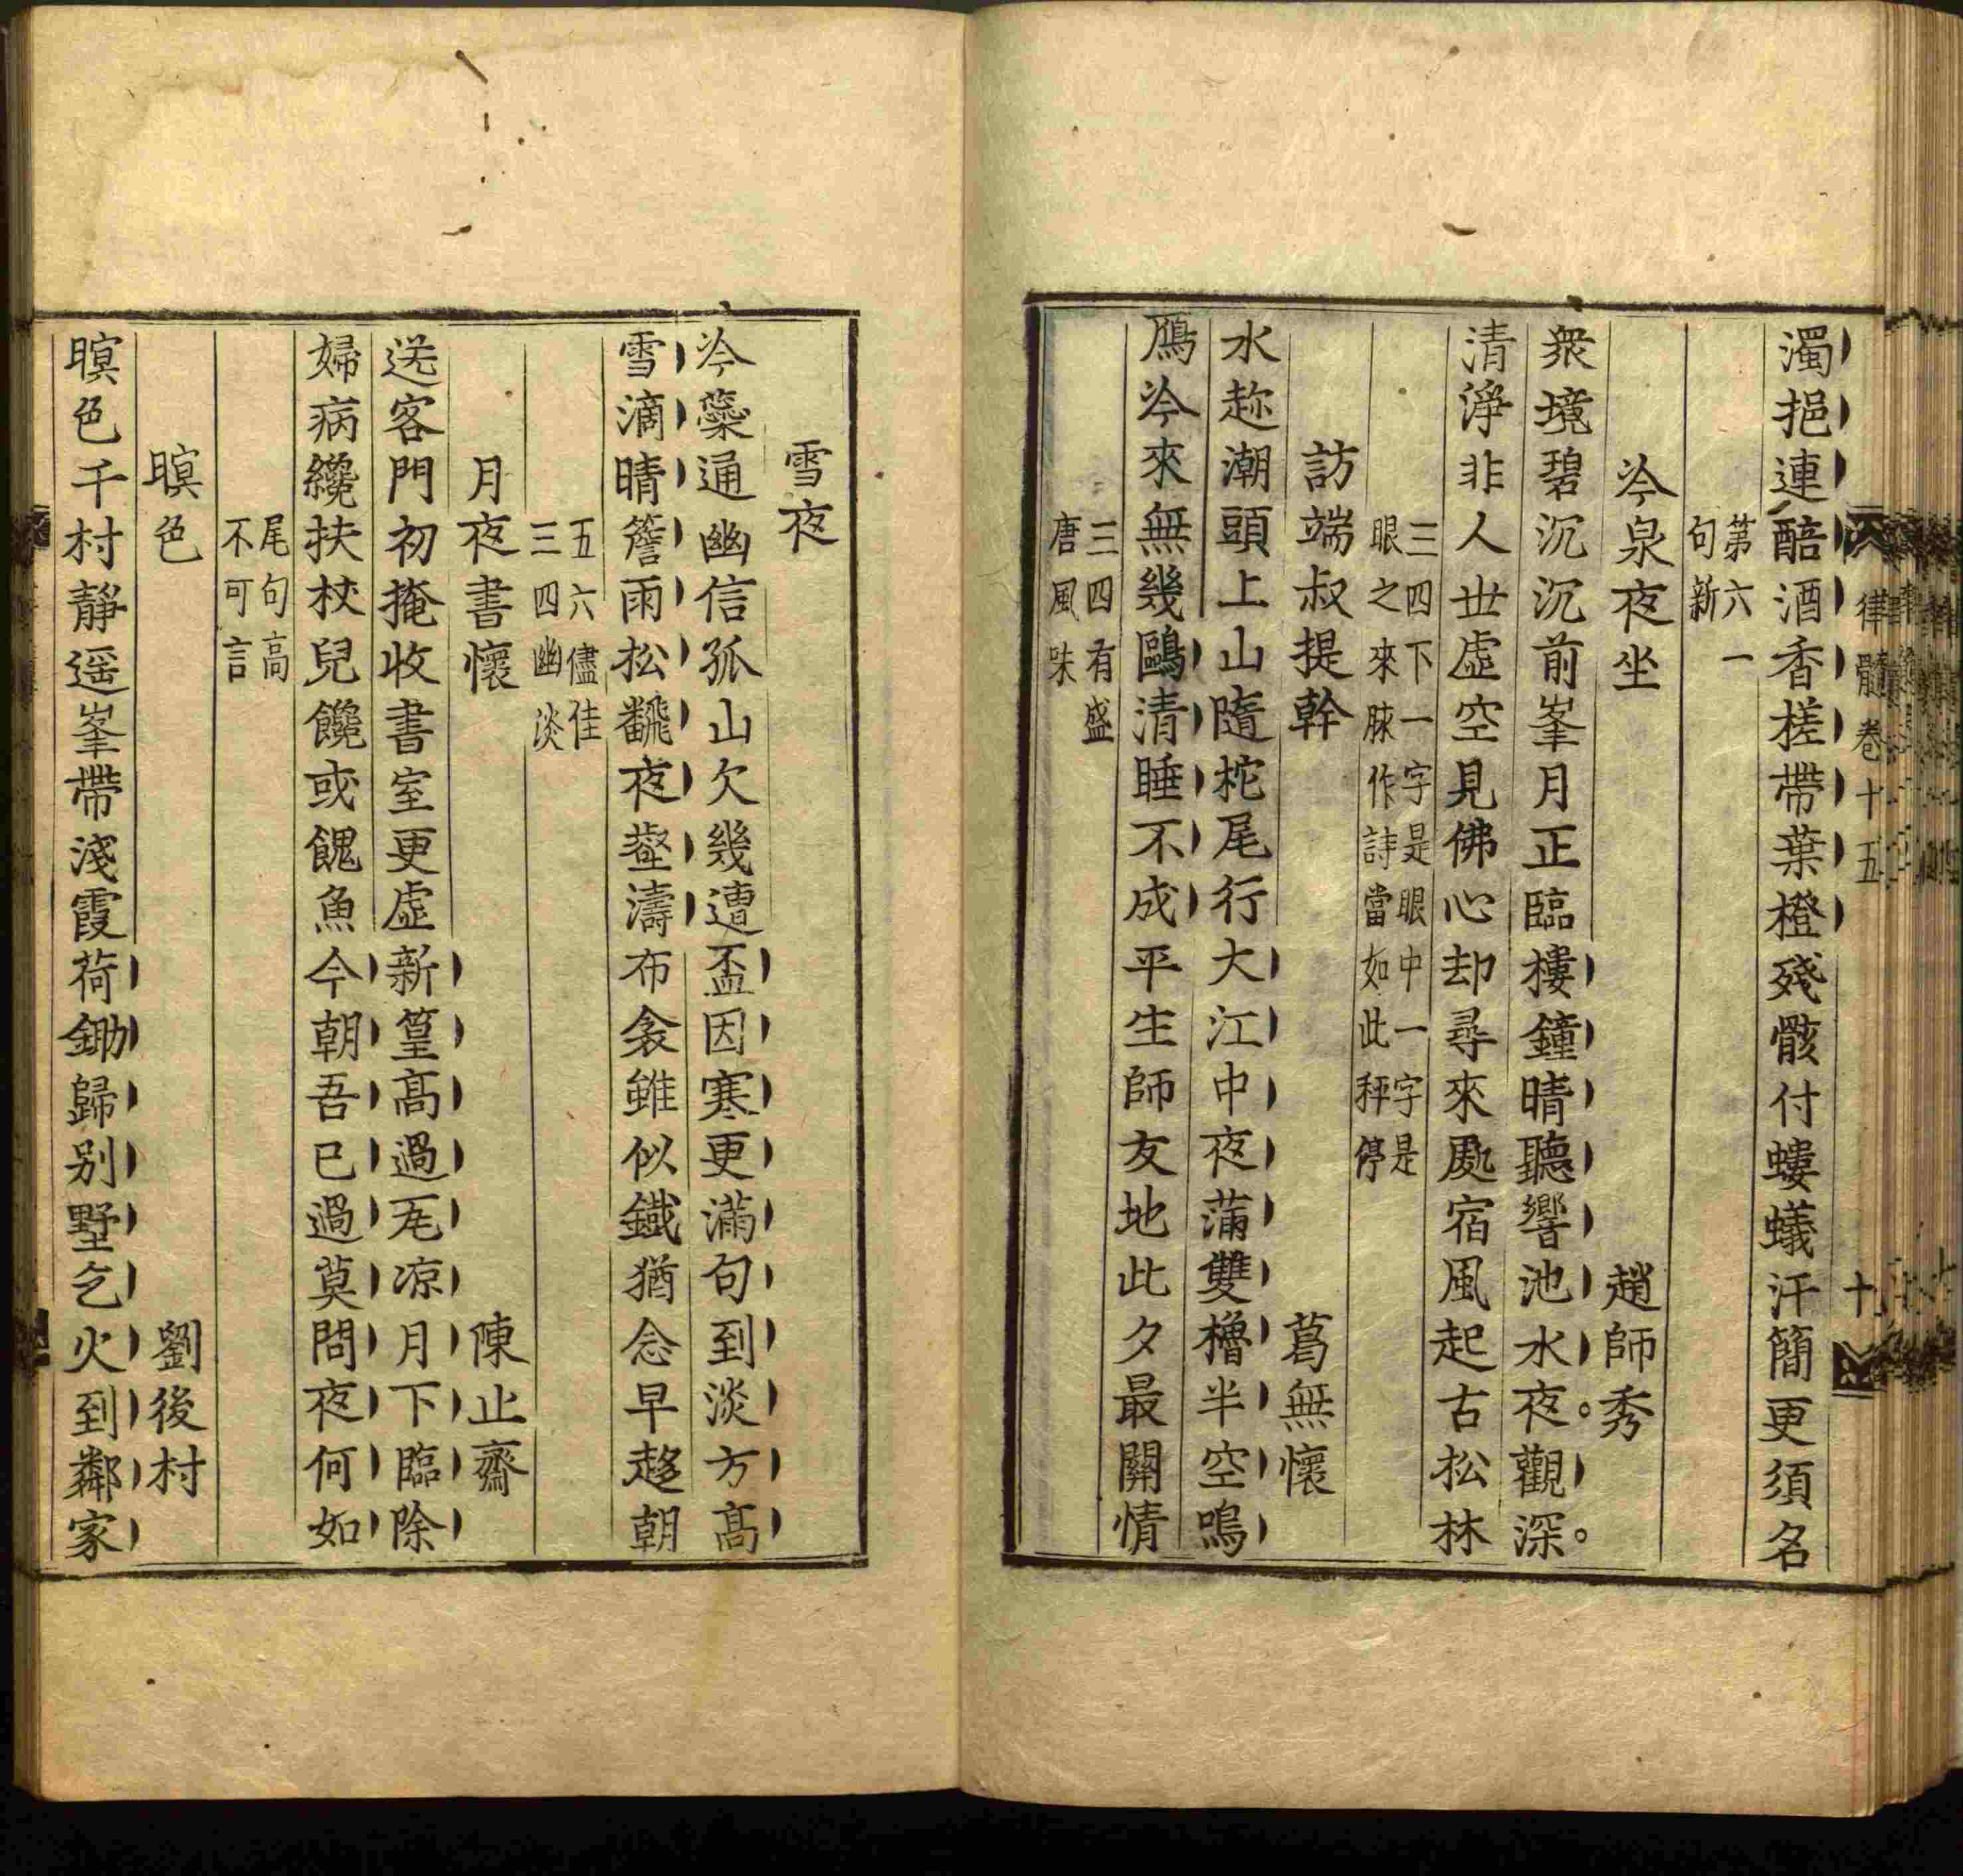 濁挹連醅酒香搓帶葉橙殘骸付螻蟻汗簡更須名
第六一
句新
冷泉夜坐 趙師秀
衆境碧沉沉前峯月正臨樓鐘晴聽響池水夜觀深
清淨非人世虛空見佛心却尋來處宿風起古松林
三四下一字是眼中一字是
眼之來脉作詩當如此秤停
訪端叔提幹 葛無懷
水趂潮頭上山隨柁尾行大江中夜滿雙櫓半空鳴
鴈冷來無幾鷗清睡不成平生師友地此夕最關情
三四有盛
唐風味
律髓卷十五
十
雪夜
冷蘂通幽信孤山欠幾遭盃因寒更滿句到淡方高
雪滴晴簷雨松飜夜壑濤布衾雖似鐵猶念早趍朝
五六儘佳
三四幽淡
月夜書懷 陳止齋
送客門初掩收書室更虛新篁高過瓦凉月下臨除
婦病纔扶杖兒饞或餽魚今朝吾已過莫問夜何如
尾句高
不可言
暝色 劉後村
暝色千村靜遥峯帶淺霞荷鋤歸别墅乞火到鄰家